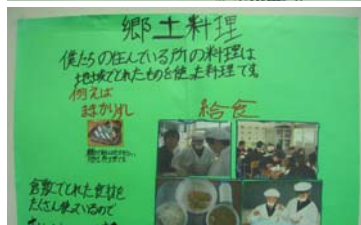 郷土料理
僕たちの住んでいる所の料理は
地域でとれたものを使った料理です。
例えば
ままかりれ
給食
倉敷でとれた食材を
たくさん使っているので